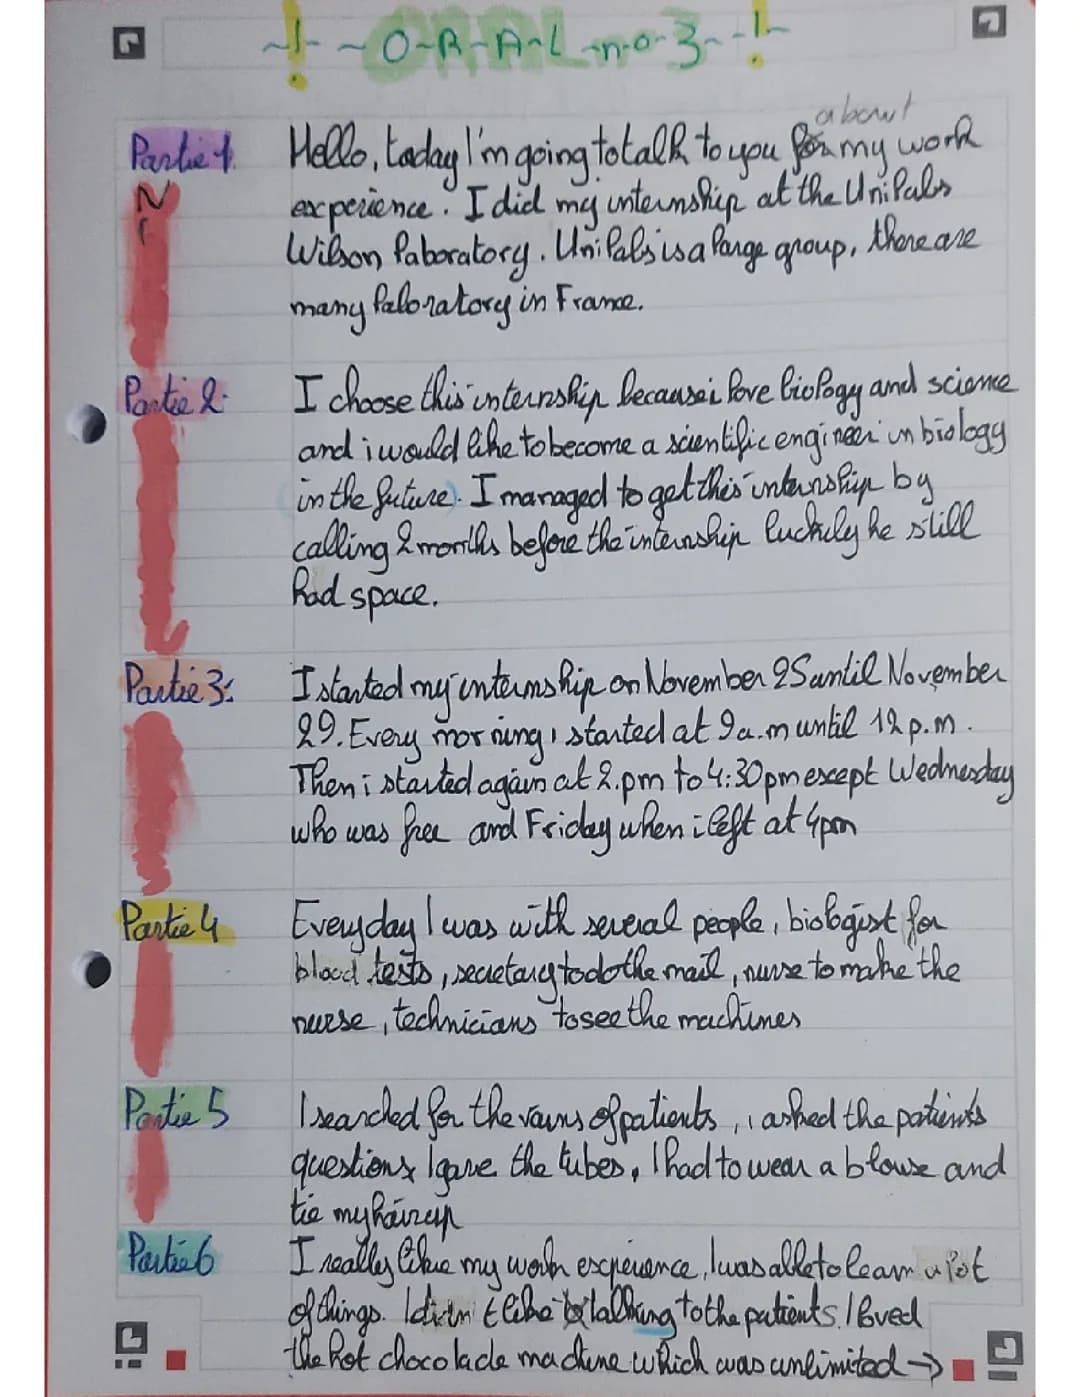 ~!~ ~O~R~A~L~n~o~3~~!~
about
Partie 1. Hello, today I'm going to talk to you for my work
experience. I did my internship at the Unilabs
Wilson laboratory. Unilabs is a large group, there are
many laboratory in France.
Partie 2. I choose this internship because i love biology and science
and i would like to become a scientific engineer in biology
in the future. I managed to get this internship by
calling 2 months before the internship luckily he still
had space.
Partie 3: I started my internship on November 25 until November
29. Every morning i started at 9a.m until 12 p.m.
Then i started again at 2.pm to 4:30pm except Wednesday
who was free and Friday when i left at 4pm
Partie 4 Everyday I was with several people, biologist for
blood tests, secretary to do the mail, nurse to make the
nurse, technicians to see the machines
Partie 5 I searched for the vains of patients, i asked the patients
questions I gave the tubes, I had to wear a blouse and
tie my hair up
Partie 6 I really like my work experience, I was able to learn a lot
of things. I didn't like talking to the patients. I loved
the hot chocolade machine which was unlimited →